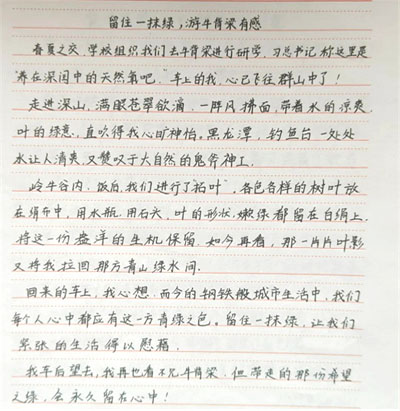 留住一抹绿,游牛背梁有感
春夏之交,学校组织我们去牛背梁进行研学,习总书记称这里是
"养在深闺中的天然氧吧。"车上的我,心已飞往群山中了!
走进深山,满眼苍翠欲滴,一阵风拂面,带着水的凉爽,
叶的绿意,直吹得我心旷神怡。黑龙潭,钓鱼台一处处
水让人清爽,又赞叹于大自然的鬼斧神工。
岭牛谷内,饭后,我们进行了"拓叶",各色各样的树叶放
在绢布中,用水瓶,用石头,叶的形状,嫩绿都留在白绢上,
将这一份盎洋的生机保留,如今再看,那一片片叶影
又将我拉回那方青山绿水间。
回来的车上,我心想,而今的钢铁般城市生活中,我们
每个人心中都应有这一方青绿之色。留住一抹绿,让我们
紧张的生活得以慰藉。
我车后望去,我再也看不见牛背梁,但带走的那份希望
之绿,会永久留在心中!